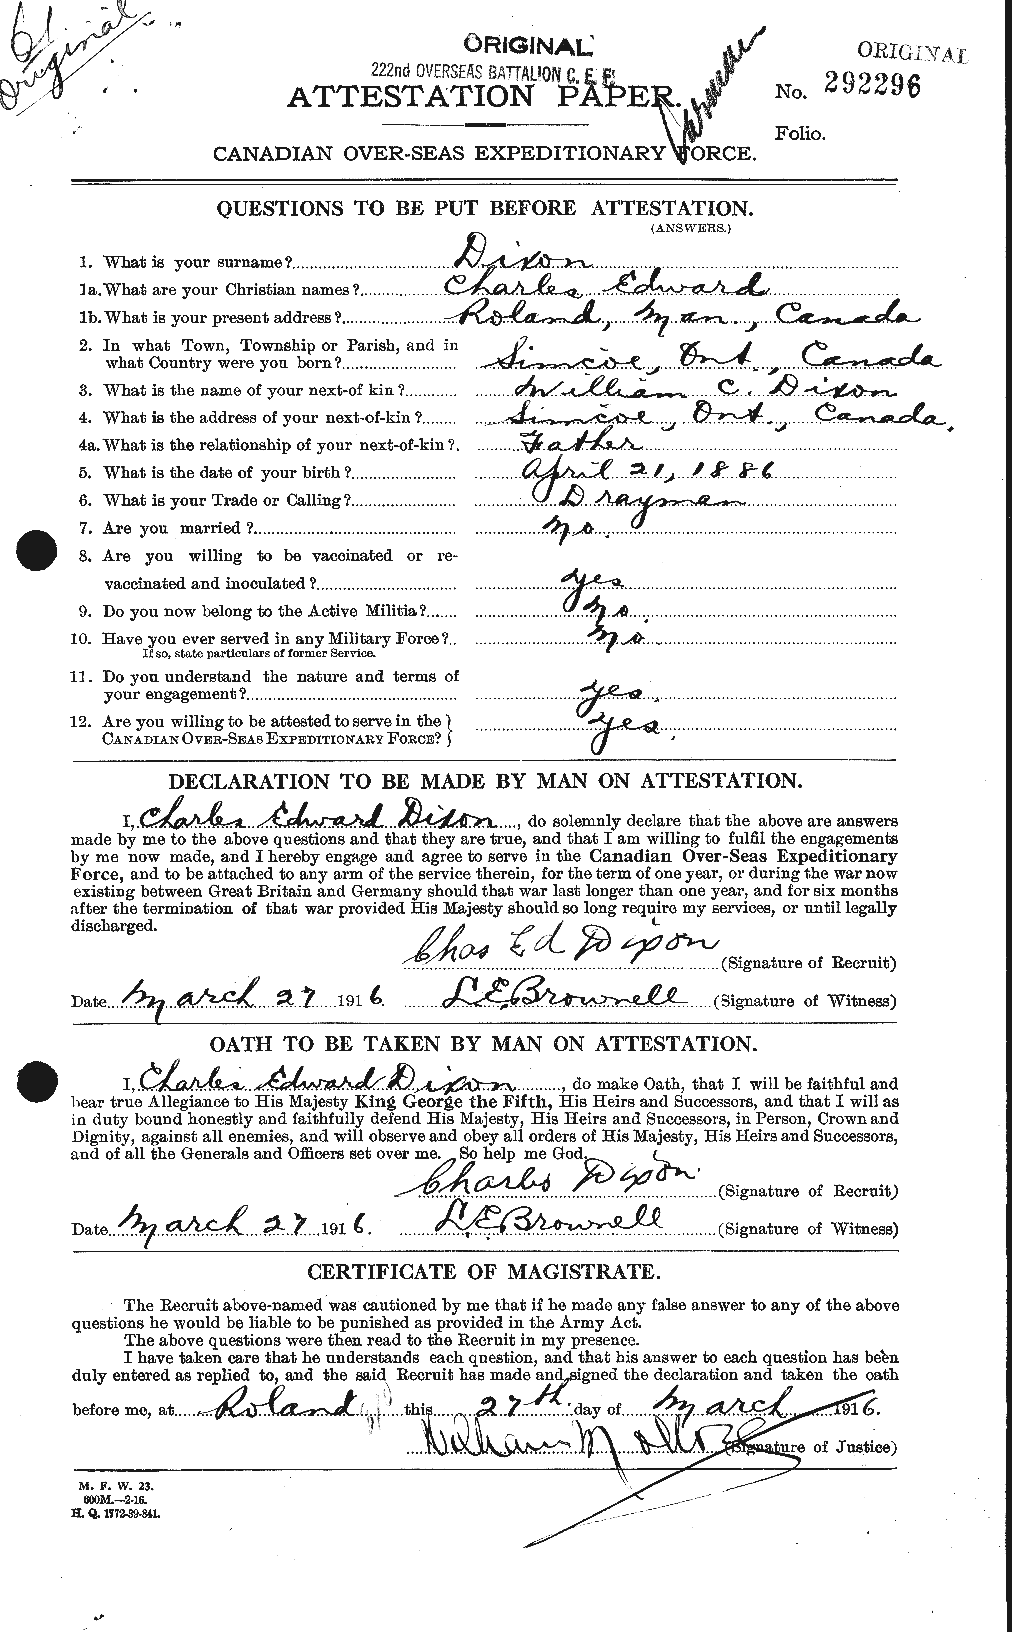 Original
ORIGINAL
222nd OVERSEAS BATTALION C. E. F.
ORIGINAL
ATTESTATION PAPER.
No. 292296
Folio.
CANADIAN OVER-SEAS EXPEDITIONARY FORCE.
QUESTIONS TO BE PUT BEFORE ATTESTATION.
(ANSWERS.)
1. What is your surname? Dixon
1a. What are your Christian names? Charles Edward
1b. What is your present address? Roland, Man, Canada
2. In what Town, Township or Parish, and in
what Country were you born? Simcoe, Ont., Canada
3. What is the name of your next-of kin? William C. Dixon
4. What is the address of your next-of-kin? Simcoe, Ont., Canada.
4a. What is the relationship of your next-of-kin? Father
5. What is the date of your birth? April 21, 1886
6. What is your Trade or Calling? Drayman
7. Are you married? No.
8. Are you willing to be vaccinated or re-
vaccinated and inoculated? Yes
9. Do you now belong to the Active Militia? No.
10. Have you ever served in any Military Force? No
If so, state particulars of former Service.
11. Do you understand the nature and terms of
your engagement? Yes.
12. Are you willing to be attested to serve in the }
CANADIAN OVER-SEAS EXPEDITIONARY FORCE? } Yes.
DECLARATION TO BE MADE BY MAN ON ATTESTATION.
I, Charles Edward Dixon, do solemnly declare that the above are answers
made by me to the above questions and that they are true, and that I am willing to fulfil the engagements
by me now made, and I hereby engage and agree to serve in the Canadian Over-Seas Expeditionary
Force, and to be attached to any arm of the service therein, for the term of one year, or during the war now
existing between Great Britain and Germany should that war last longer than one year, and for six months
after the termination of that war provided His Majesty should so long require my services, or until legally
discharged.
Chas Ed Dixon (Signature of Recruit)
Date March 27 1916. L.E. Brownell (Signature of Witness)
OATH TO BE TAKEN BY MAN ON ATTESTATION.
I, Charles Edward Dixon, do make Oath, that I will be faithful and
bear true Allegiance to His Majesty King George the Fifth, His Heirs and Successors, and that I will as
in duty bound honestly and faithfully defend His Majesty, His Heirs and Successors, in Person, Crown and
Dignity, against all enemies, and will observe and obey all orders of His Majesty, His Heirs and Successors,
and of all the Generals and Officers set over me. So help me God.
Charles Dixon (Signature of Recruit)
Date March 27 1916. L.E. Brownell (Signature of Witness)
CERTIFICATE OF MAGISTRATE.
The Recruit above-named was cautioned by me that if he made any false answer to any of the above
questions he would be liable to be punished as provided in the Army Act.
The above questions were then read to the Recruit in my presence.
I have taken care that he understands each question, and that his answer to each question has been
duly entered as replied to, and the said Recruit has made and signed the declaration and taken the oath
before me, at Roland this 27th. day of March 1916.
William (Signature of Justice)
M. F. W. 23.
600M.—2-16.
H. Q. 1772-39-841.